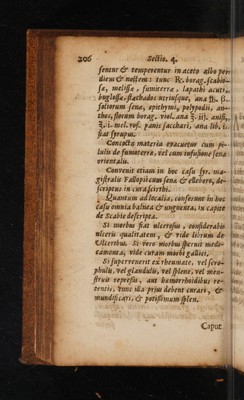 206 Sectio. 4.
sentur & temperentur in aceto albo per
diem & noctem: tunc ℞. borag. scabio-
sæ, melissæ, fumiterræ, lapathi acuti,
buglossæ, stæchados utriusque, ana ℔. ß.
foliorum senæ, epithymi, polypodii, an-
thos, florum borag. viol. ana ℥. iij. anisi,
℥. i. mel. ros. panis sacchari, ana lib. i.
fiat syrupus.
Concocta materia evacuetur cum pi-
lulis de fumoterræ. vel cum infusione senæ
orientalis.
Convenit etiam in hoc casu syr. ma-
gistralis Fallopii cum sena & elleboro, de-
scriptus in cura scirrhi.
Quantum ad localia, conferunt in hoc
casu omnia balnea & unguenta, in capite
de Scabie descripta.
Si morbus fiat ulcerosus, considerabis
ulceris qualitatem, & vide librum de
Ulceribus. Si vero morbus spernit medi-
camenta, vide curam morbi gallici.
Si supervenerit ex rheumate, vel scro-
phulis, vel glandulis, vel splene, vel men-
struis repressis, aut hæmorrhoidibus re-
tentis, tunc illa prius debent curari, &
mundificari, & potissimum splen.
Caput